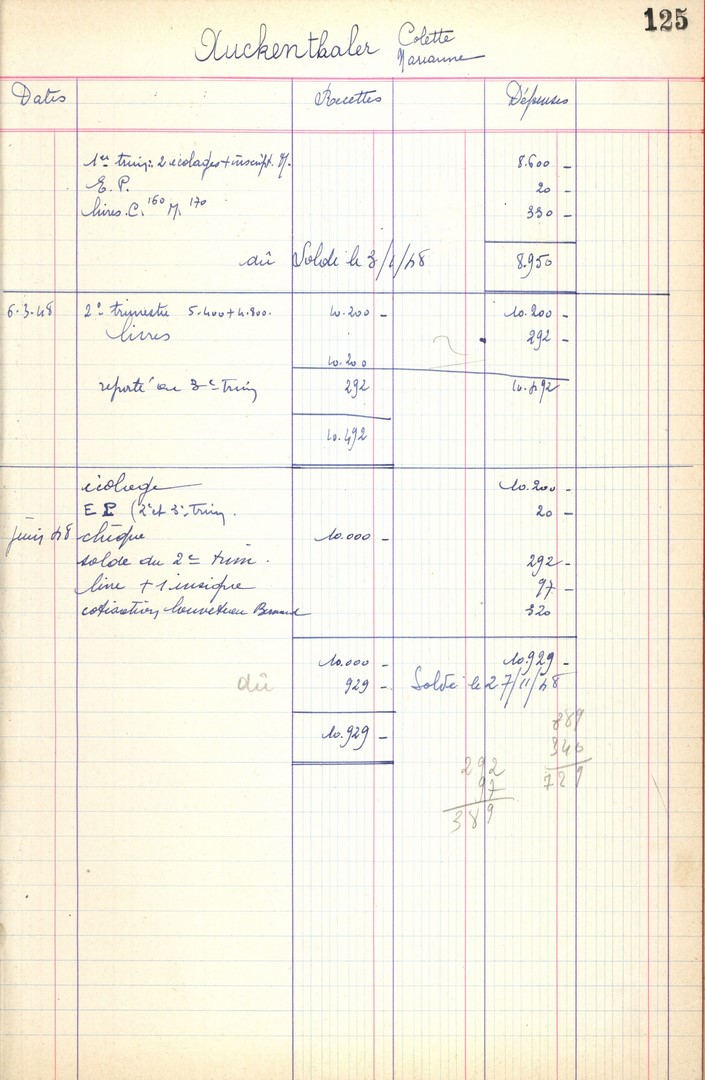 125
Colette
Marianne
Dates Recettes Dépenses
1er trim: 2 écolages + inscript. M. 8.600 -
E.P. 20 -
livres C. 160 M. 170 330 -
dû Solde le 3/1/48 8.950
6.3.48 2e trimestre 5.400 + 4.800. 10.200 - 10.200 -
livres 292 -
10.200
reporté au 3e trim 292 10.492
10.492
écolage 10.200 -
E P (2e et 3e trim. 20 -
juin 48 chèque 10.000 -
solde du 2e trim. 292 -
livre + 1 insigne 97 -
cotisation louveteau Bernard 320
10.000 - 10.929 -
dû 929 - Solde le 27/11/48
10.929 -
389
340
729
292
97
389